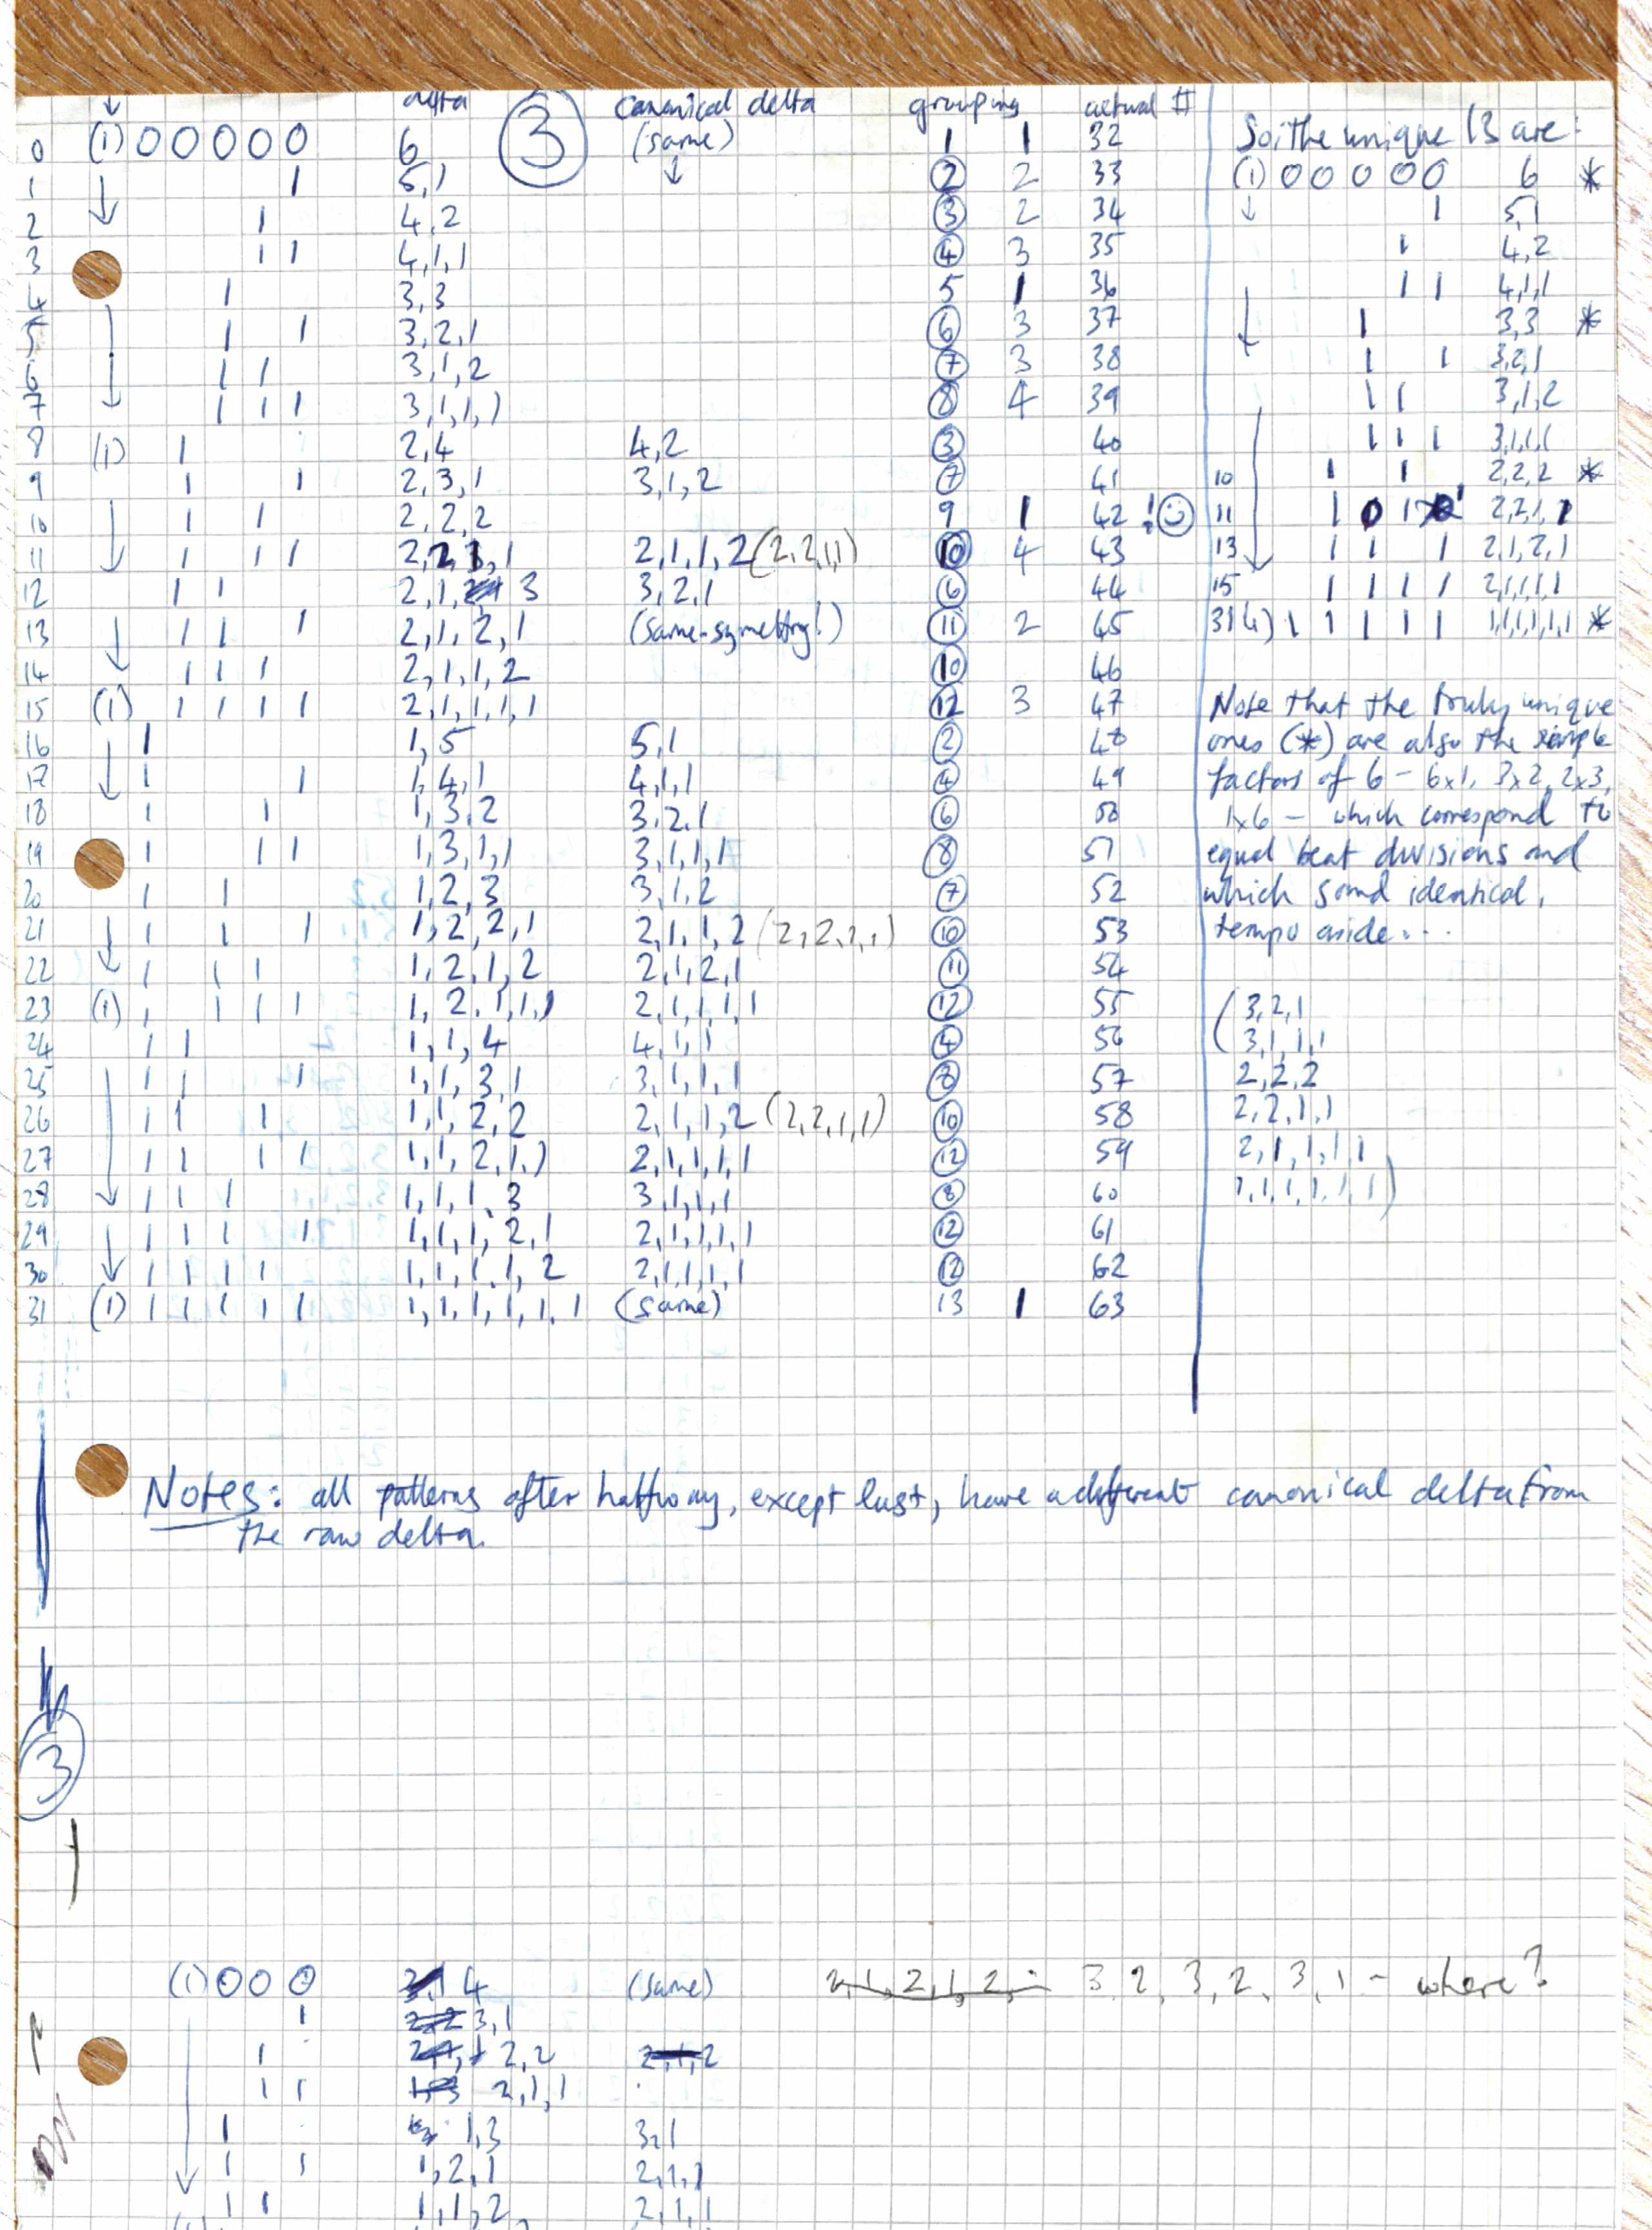 ↓ delta ③ canonical delta grouping actual #
0 (1) 0 0 0 0 0 6 (same) 1 1 32
1 1 5,1 ↓ ② 2 33
2 1 4,2 ③ 2 34
3 1 1 4,1,1 ④ 3 35
4 1 3,3 5 1 36
5 1 1 3,2,1 ⑥ 3 37
6 1 1 3,1,2 ⑦ 3 38
7 1 1 1 3,1,1,1 ⑧ 4 39
8 (1) 1 2,4 4,2 ③ 40
9 1 1 2,3,1 3,1,2 ⑦ 41
10 1 1 2,2,2 9 1 42 !☺
11 1 1 1 2,2,1,1 2,1,1,2 (2,2,1,1) ⑩ 4 43
12 1 1 2,1, 3 3,2,1 ⑥ 44
13 1 1 1 2,1,2,1 (same-symettry!) ⑪ 2 45
14 1 1 1 2,1,1,2 ⑩ 46
15 (1) 1 1 1 1 2,1,1,1,1 ⑫ 3 47
16 1 1,5 5,1 ② 48
17 1 1 1,4,1 4,1,1 ④ 49
18 1 1 1,3,2 3,2,1 ⑥ 50
19 1 1 1 1,3,1,1 3,1,1,1 ⑧ 51
20 1 1 1,2,3 3,1,2 ⑦ 52
21 1 1 1 1,2,2,1 2,1,1,2 (2,2,1,1) ⑩ 53
22 1 1 1 1,2,1,2 2,1,2,1 ⑪ 54
23 (1) 1 1 1 1 1,2,1,1,1 2,1,1,1,1 ⑫ 55
24 1 1 1,1,4 4,1,1 ④ 56
25 1 1 1 1,1,3,1 3,1,1,1 ⑧ 57
26 1 1 1 1,1,2,2 2,1,1,2 (2,2,1,1) ⑩ 58
27 1 1 1 1 1,1,2,1,1 2,1,1,1,1 ⑫ 59
28 1 1 1 1,1,1,3 3,1,1,1 ⑧ 60
29 1 1 1 1 1,1,1,2,1 2,1,1,1,1 ⑫ 61
30 1 1 1 1 1,1,1,1,2 2,1,1,1,1 ⑫ 62
31 (1) 1 1 1 1 1 1,1,1,1,1,1 (same) 13 1 63
So: the unique 13 are:
(1) 0 0 0 0 0 6 *
↓ 1 5,1
1 4,2
1 1 4,1,1
1 3,3 *
1 1 3,2,1
1 1 3,1,2
1 1 1 3,1,1,1
10 1 1 2,2,2 *
11 1 0 1 1 2,2,1,1
13 1 1 1 2,1,2,1
15 1 1 1 1 2,1,1,1,1
31 (1) 1 1 1 1 1 1,1,1,1,1,1 *
Note that the truly unique
ones (*) are also the simple
factors of 6 - 6x1, 3x2, 2x3,
1x6 - which correspond to
equal beat divisions and
which sound identical,
tempo aside...
(3,2,1
3,1,1,1
2,2,2
2,2,1,1
2,1,1,1,1
1,1,1,1,1,1)
Notes: all patterns after halfway, except last, have a different canonical delta from
the raw delta.
3
(1) 0 0 0 4 (same) 2,1,2,1,2,- 3,2,3,2,3,1 - where?
1 3,1
1 2,2 2,1,2
1 1 2,1,1
1 1,3 3,1
1 1 1,2,1 2,1,1
1 1 1,1,2 2,1,1